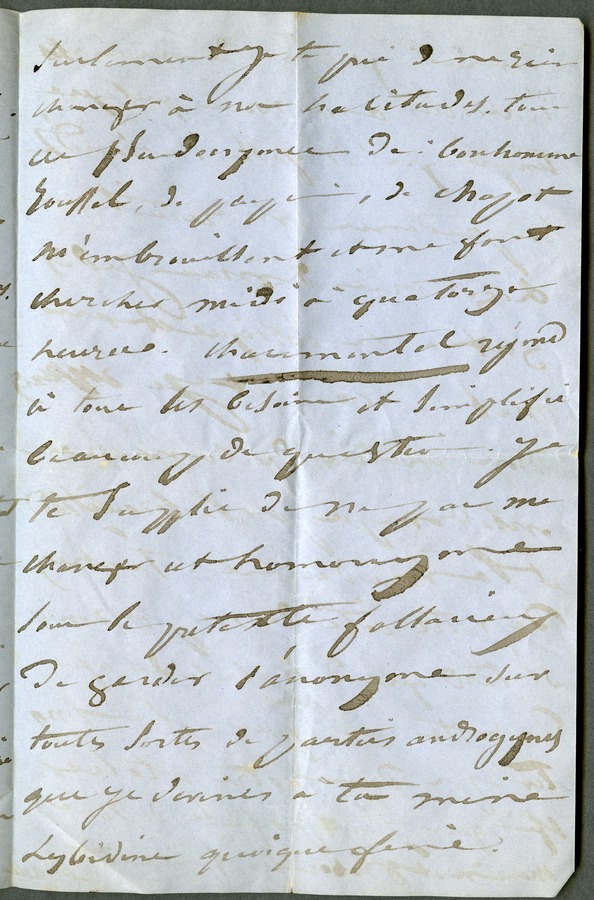 Seulement je te prie de ne rien
changer à nos habitudes. tous
ces pseudonymes de: bonhomme
de , de chapot
m'embrouillent et me font
chercher midi à quatorze
heures. charmantel répond
à tous les besoins et simplifie
beaucoup de question. Je
te supplie de ne pas me
changer cet homonyme
sous le pretexte fallacieux
de garder l'anonyme sur
toutes sortes de parties androgynes
que je devines à ta mine
Lybidine quoique fanée.